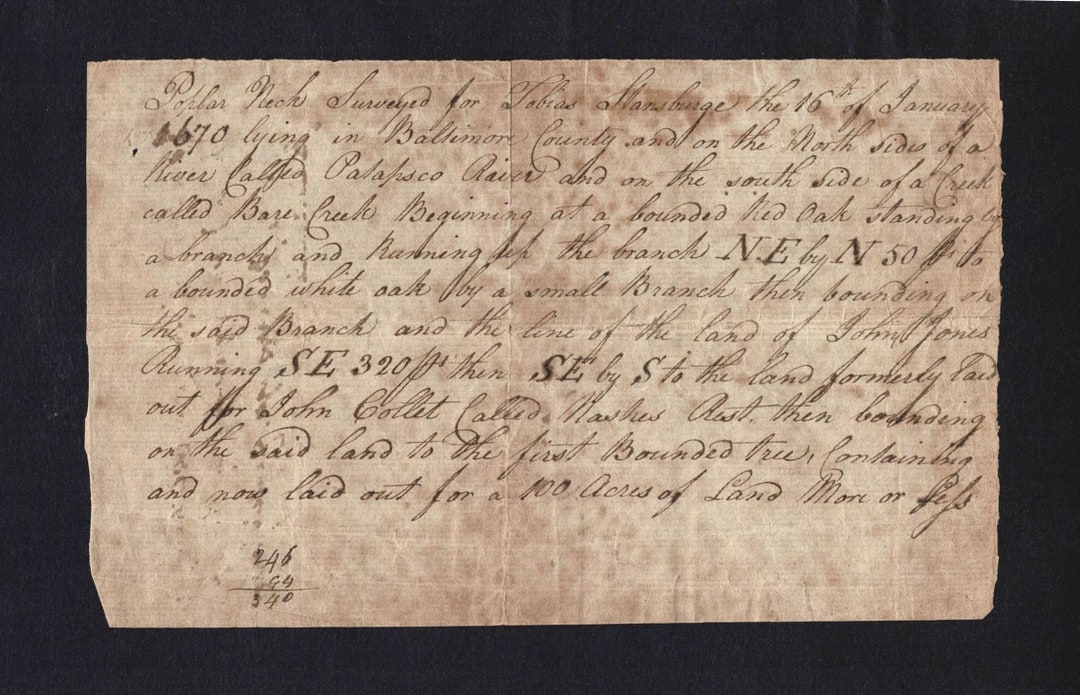 Poplar Neck Surveyed for Tobias Stansburge the 16th of January
1670 lying in Baltimore County and on the North side of a
River Called Patapsco River and on the south side of a Creek
called Bare Creek Beginning at a bounded Red Oak standing by
a branch and Running up the branch N.E by N 50 ps to
a bounded white oak by a small Branch then bounding on
the said Branch and the line of the land of John Jones
Running SE 320 ps then SE by S to the land formerly laid
out for John Collet Called Nashes Rest. then bounding
on the said land to the first Bounded tree, Containing
and now laid out for a 100 Acres of Land More or Less
246
94
340